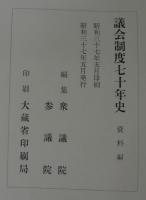 議会制度七十年史
資料編
昭和三十七年五月印刷
昭和三十七年五月発行
編集
衆議院
参議院
印刷
大蔵省印刷局